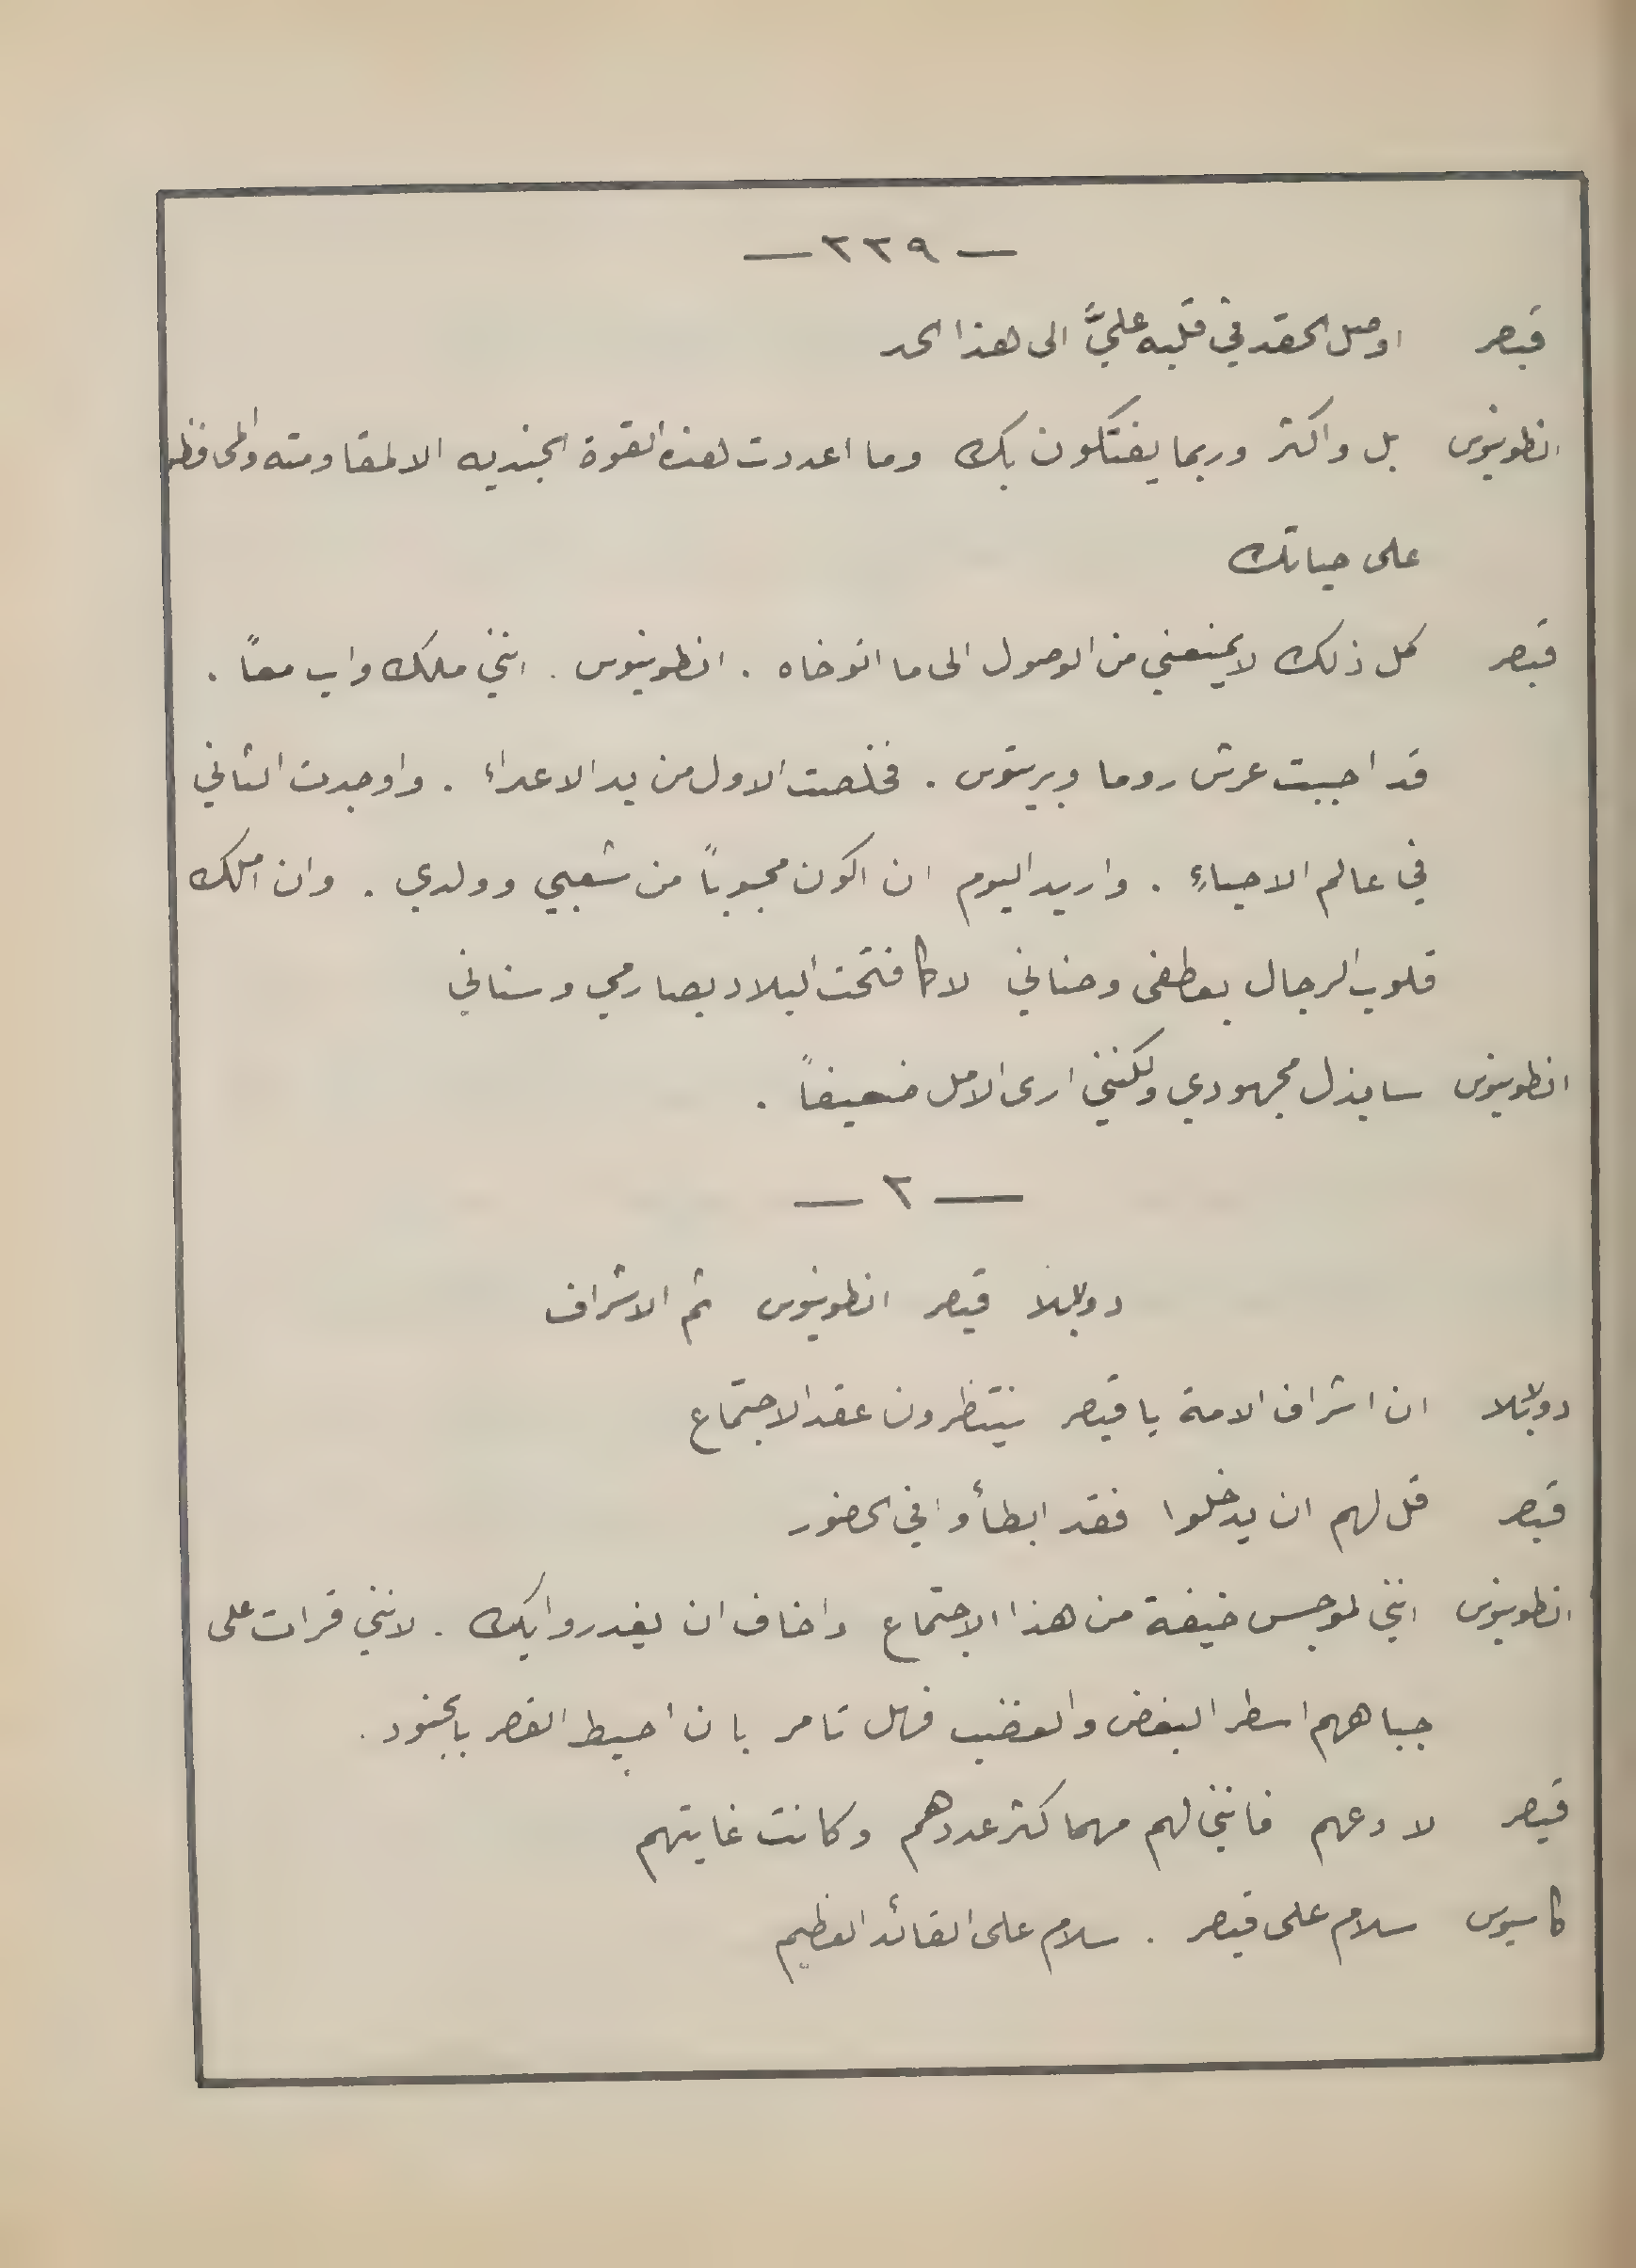 — ٢٢٩ —
قيصر اوصل الحقد في قلبه عليَّ الى هذا الحد
انطونيوس بل واكثر وربما يفتكون بك وما اعددت لهذه القوة الجنديه الا لمقاومته والمحافظه
على حياتك
قيصر كل ذلك لا يمنعني من الوصول الى ما اتوخاه . انطونيوس . انني ملك واب معاً .
قد احببت عرش روما وبريتوس . فخلصت الاول من يد الاعداء . واوجدت الثاني
في عالم الاحياء . واريد اليوم ان اكون محبوباً من شعبي وولدي . وان املك
قلوب الرجال بعطفي وحناني لا كما فتحت البلاد بصارمي وسناني
انطونيوس سابذل مجهودي ولكنني ارى الامل ضعيفاً .
— ٢ —
دولابلا قيصر انطونيوس ثم الاشراف
دولابلا ان اشراف الامة يا قيصر ينتظرون عقد الاجتماع
قيصر قل لهم ان يدخلوا فقد ابطأوا في الحضور
انطونيوس انني لموجس خيفة من هذا الاجتماع واخاف ان يغدروا بك . لانني قرات على
جباههم اسطر البغض والغضب فهل تامر بان أحيط القصر بالجنود .
قيصر لا دعهم فانني لهم مهما كثر عددهم وكانت غايتهم
كاسيوس سلام على قيصر . سلام على القائد العظيم